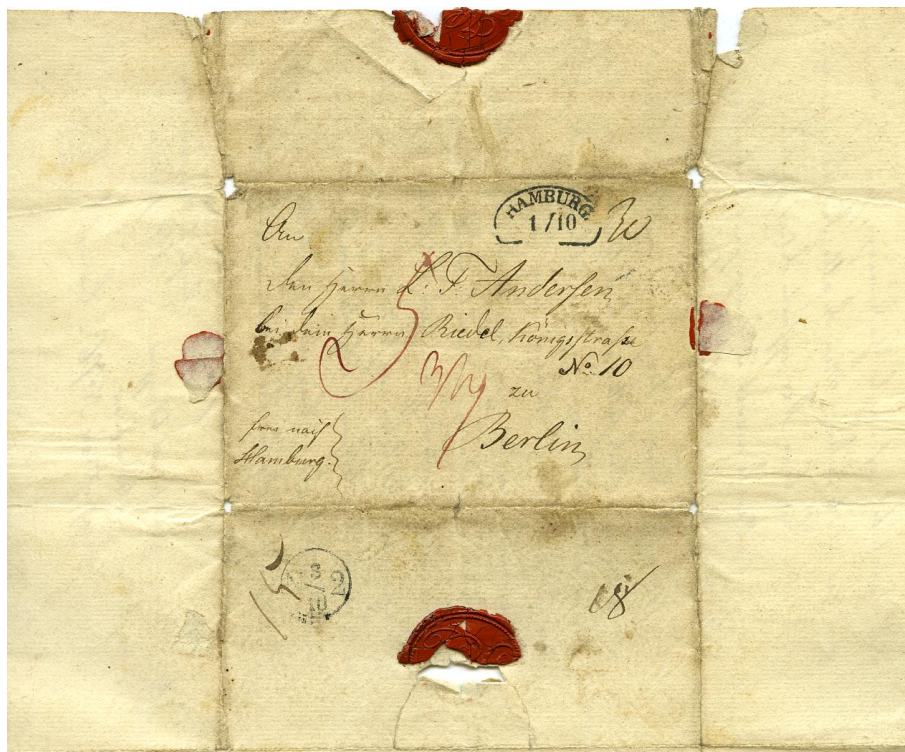 HAMBURG.
1/10
An
den Herrn L. T. Andersen
bei dem Herrn Riedel, Königsstraße
No. 10
zu
Berlin
frei nach
Hamburg.
3
10
2
18